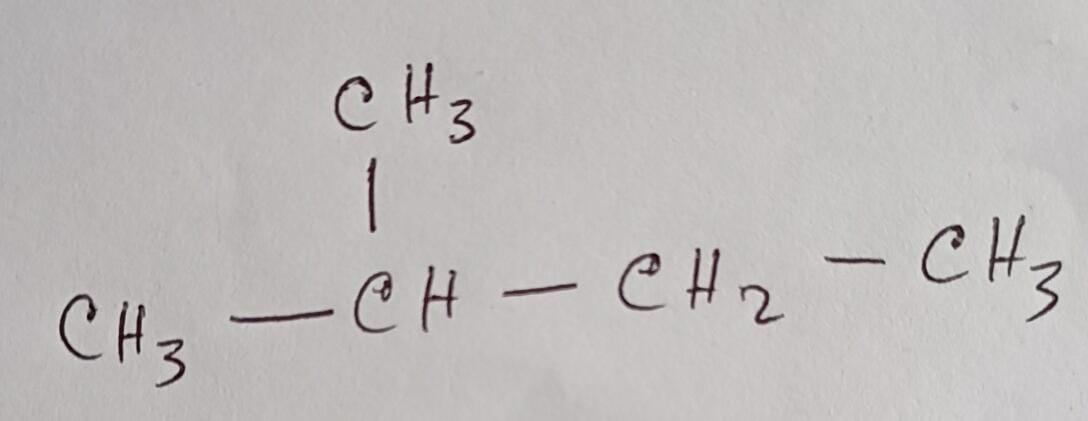 CH3
|
CH3 — CH — CH2 — CH3